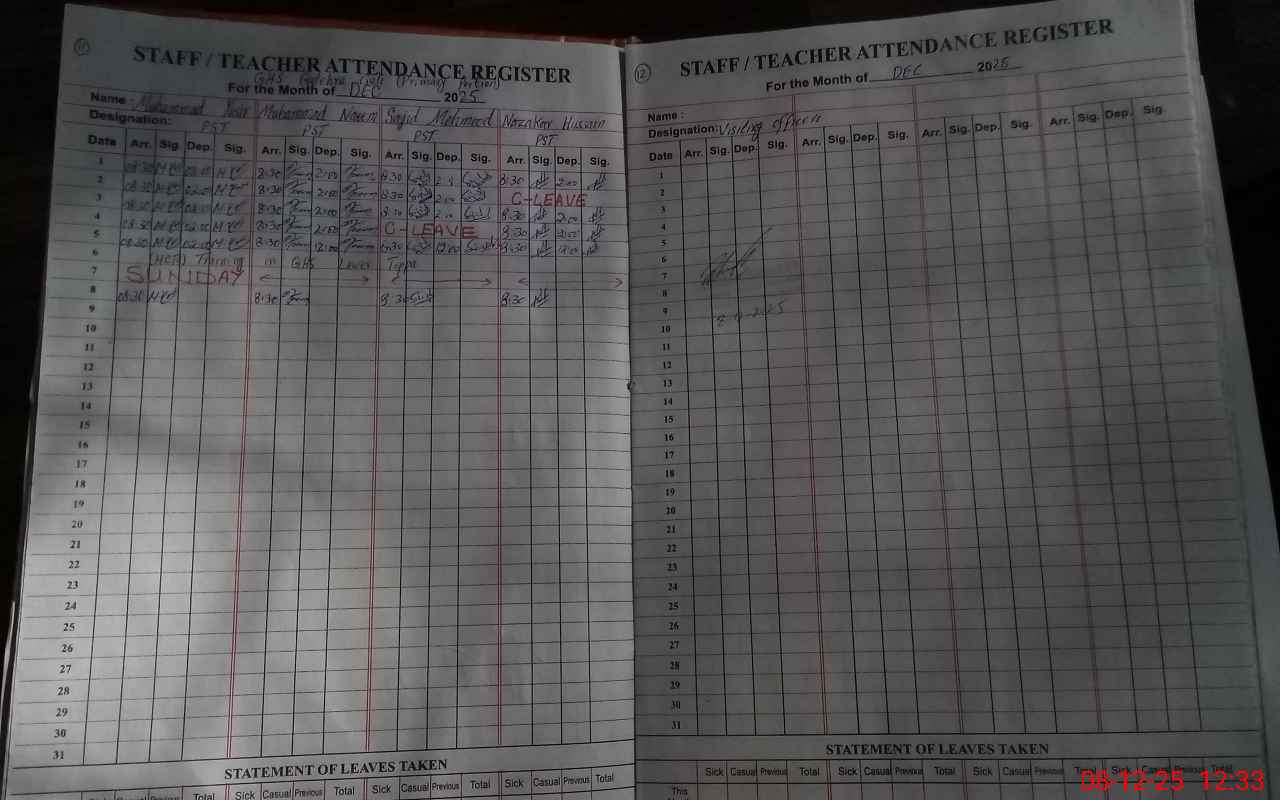 11
STAFF / TEACHER ATTENDANCE REGISTER
For the Month of DEC 2025
Name : Muhammad Muhammad Naeem Sajid Mehmood Nazakat Hussain
Designation: PST PST PST PST
Date Arr. Sig. Dep. Sig. Arr. Sig. Dep. Sig. Arr. Sig. Dep. Sig. Arr. Sig. Dep. Sig.
1 08:30 02:00 8:30 2:00 8:30 2:00 8:30 2:00
2 08:30 02:00 8:30 2:00 8:30 2:00 C-LEAVE
3 08:30 02:00 8:30 2:00 8:30 2:00 8:30 2:00
4 08:30 02:00 8:30 2:00 C-LEAVE 8:30 2:00
5 08:30 02:00 8:30 12:00 8:30 12:00 8:30 12:00
6 Training in GHS Lower Topa
7 SUNDAY
8 08:30 8:30 8:30 8:30
9
10
11
12
13
14
15
16
17
18
19
20
21
22
23
24
25
26
27
28
29
30
31
STATEMENT OF LEAVES TAKEN
Sick Casual Previous Total Sick Casual Previous Total Sick Casual Previous Total Sick Casual Previous Total
12
STAFF / TEACHER ATTENDANCE REGISTER
For the Month of DEC 2025
Name :
Designation: Visiting officers
Date Arr. Sig. Dep. Sig. Arr. Sig. Dep. Sig. Arr. Sig. Dep. Sig. Arr. Sig. Dep. Sig.
1
2
3
4
5
6
7
8
9
10
11
12
13
14
15
16
17
18
19
20
21
22
23
24
25
26
27
28
29
30
31
STATEMENT OF LEAVES TAKEN
Sick Casual Previous Total Sick Casual Previous Total Sick Casual Previous Total Sick Casual Previous Total
This
08-12-25 12:33